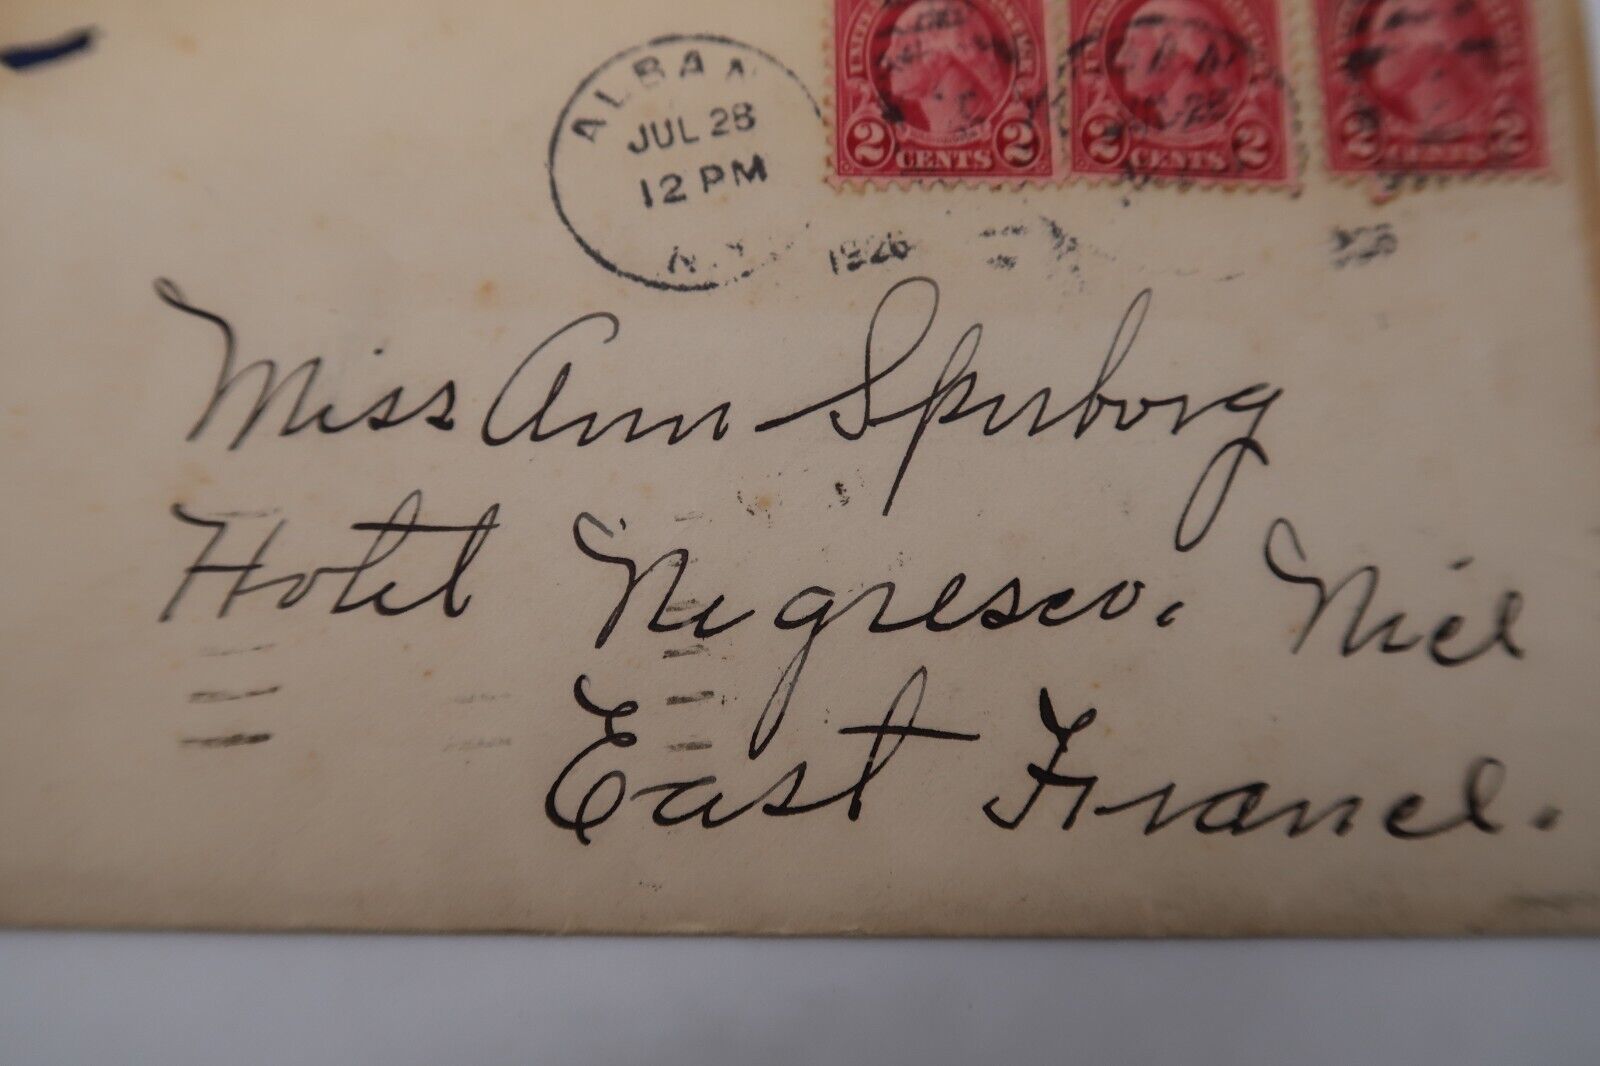 ALBAN
JUL 28
12 PM
N.Y.
1926
2 CENTS 2
2 CENTS 2
2 CENTS 2
Miss Ann Spurborg
Hotel Negresco. Nice
East France.